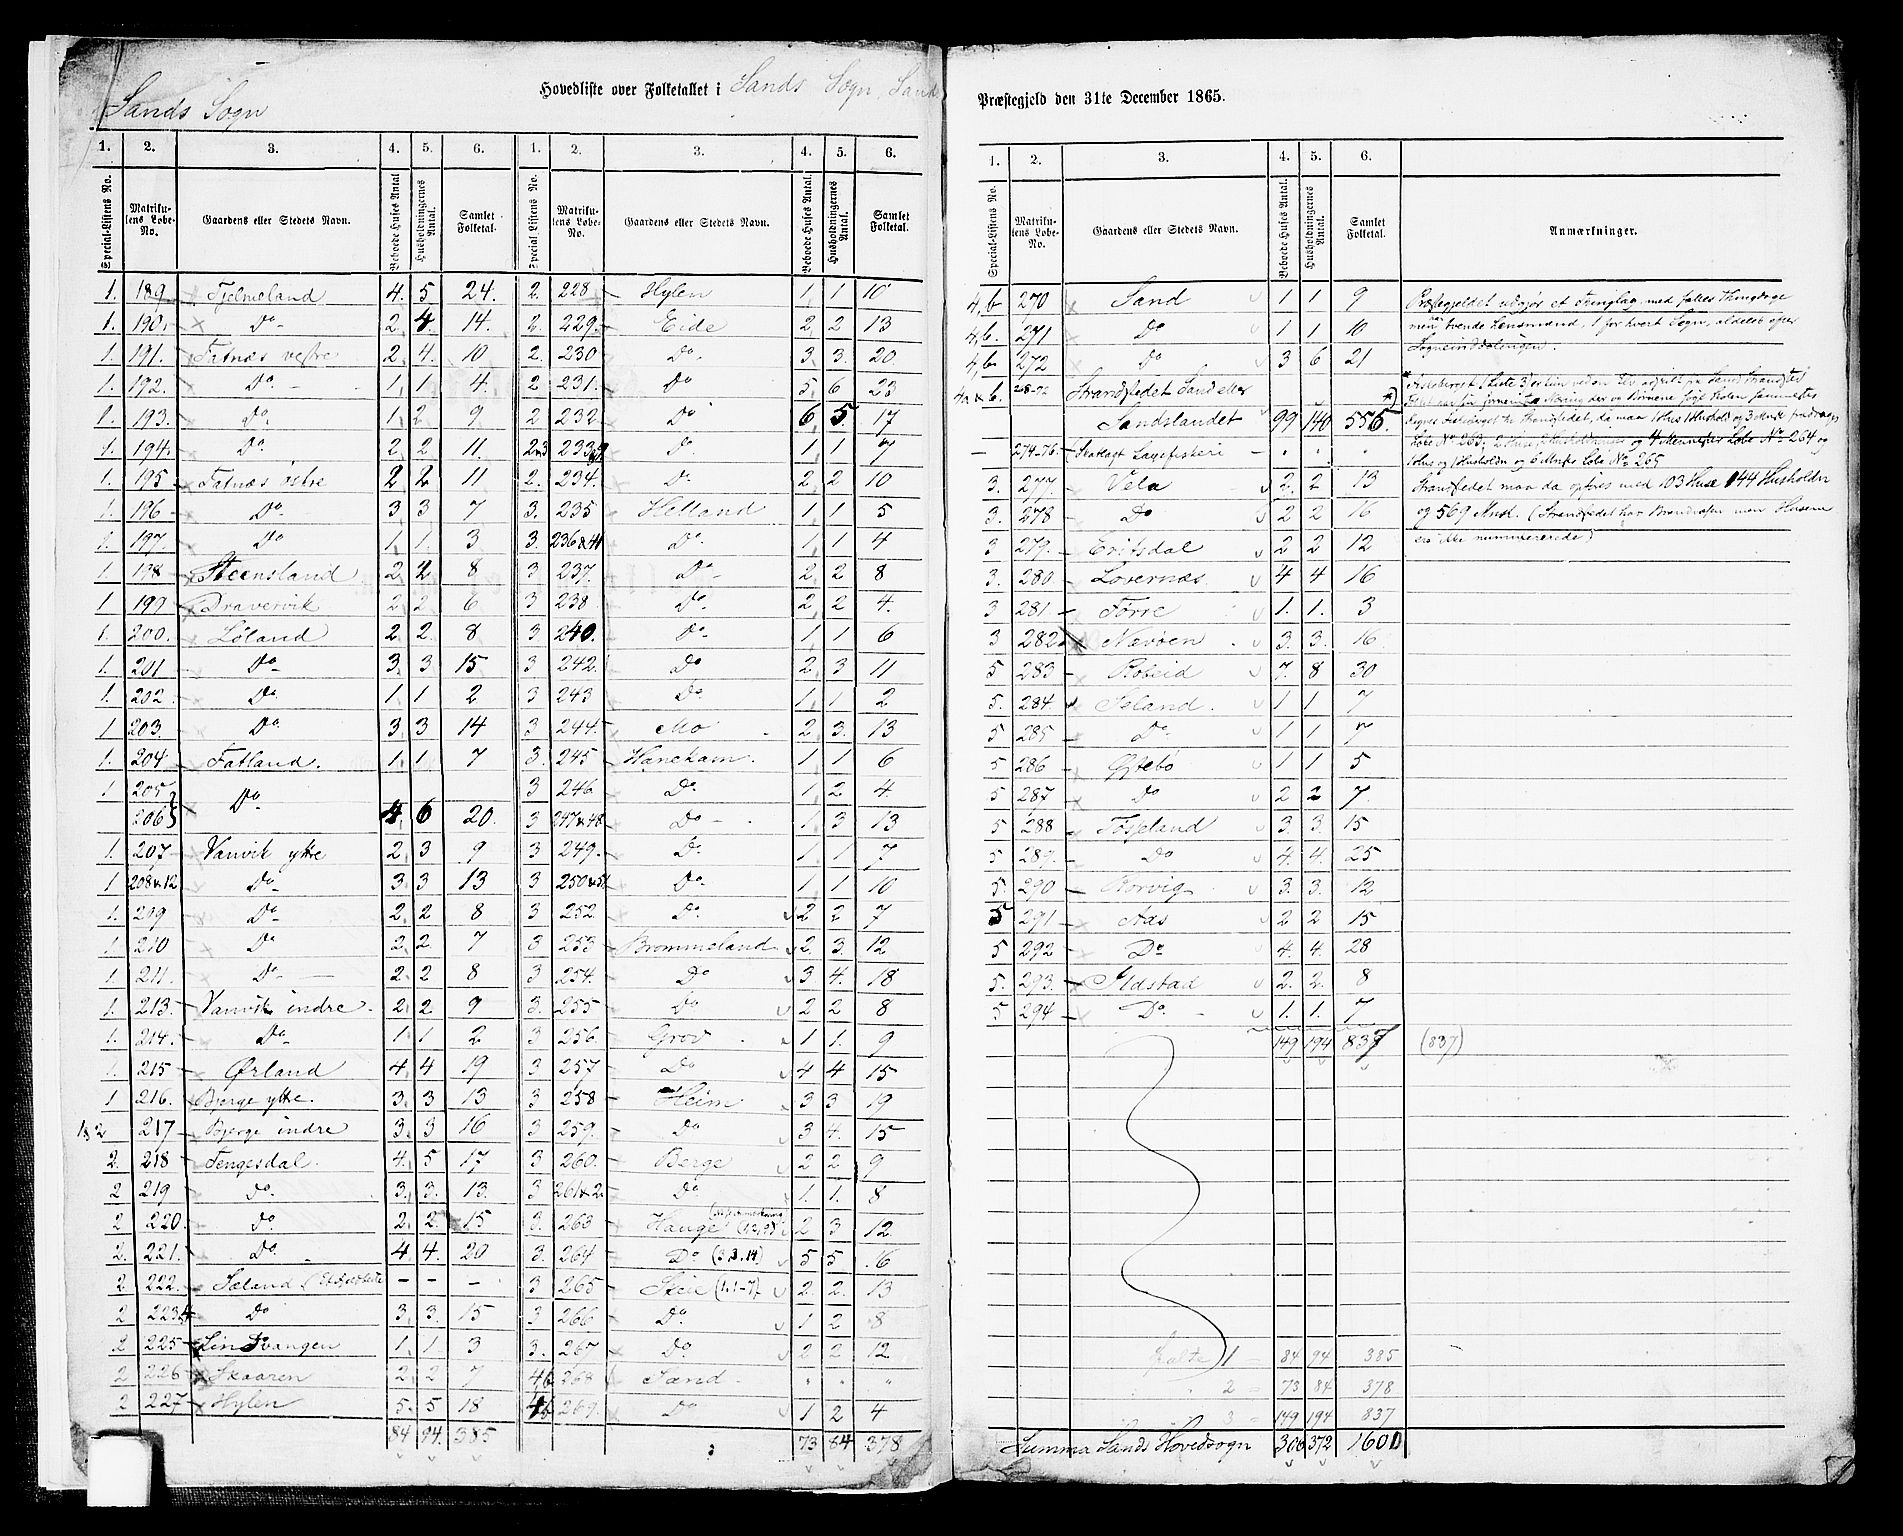 Sands Sogn
Hovedliste over Folketallet i Sands Sogn, Sand
Præstegjeld den 31te December 1865.
1. 2. 3. 4. 5. 6. 1. 2. 3. 4. 5. 6.
Special-Listens No. Matriku-lens Løbe-No. Gaardens eller Stedets Navn. Beboede Huses Antal Husholdningernes Antal. Samlet Folketal. Special Listens No. Matriku-lens Løbe-No. Gaardens eller Stedets Navn. Beboede Huses Antal. Husholdningernes Antal. Samlet Folketal.
1. 189. Tjelmeland 4. 5 24. 2. 228 Hylen 1 1 10
1. 190. Do 2 4 14. 2. 229. Eide 2 2 13
1. 191. Fatnæs vestre 2 4. 10 2. 230 Do. 3 3. 20
1. 192. Do. 1 1 4. 2 231. Do 5 6 23
1. 193. Do. 1 2 9 2 232. Do 6 5 17
1. 194. Do. 2 2 11. 2&3 233 D. 1 1 7
1. 195 Fatnæs østre 2 2 11 2. 234. Do. 2 2 10
1 196 Do. 3 3 7 3. 235 Helland 1 1 5
1. 197. Do 1 1. 3 3. 236&41 Do. 1 1 4
1 198 Steensland 2 2 8 3 237. Do 2 2 8
1 199 Drarvervik 2 2 6 3 238 Do. 2 2 4.
1. 200. Løland 2 2. 8 3 240. Do 1 1 6
1. 201 Do 3. 3 15 3. 242. Do 2 3 11
1. 202 Do 1 1 2 3 243 Do 1 1 2
1 203. Do 3 3 14 3 244. Mo 2. 3. 13
1. 204. Fatland. 1 1 7 3. 245 Hanekam. 1 1 6
1 205 3 246 Do. 1 2 4
206 Do 4 6 20. 3 247&48 Do 1 3 13
1. 207 Vanvik ytre 2 3 9 3 249. D. 1 1 7
1 208&12 Do. 3. 3 13 3 250&51 Do. 1 1 10
1. 209 Do 2 2 8 3 252 Do. 2 2 7
1. 210 Do 2 2 7 3 253 Brommeland 2 3. 12
1. 211. Do 2 2 8 3 254. Do 3 4. 18
1. 213. Vanvik indre. 2 2 9 3. 255 Do 2 2 8
1. 214. Do 1 1 2 3. 256. Grov 1. 1. 9
1. 215 Ørland 4 4 19 3. 257 Do 4 4 15
1 216. Bjerge ytre. 3. 3 13 3 258 Heim 3 3 19
1&2 217 Bjerge indre 3. 3 16 3 259. Do 3 4. 15
2. 218 Tengesdal. 4. 5 17 3. 260. Berge 2 2 9
2 219 Do. 3. 3. 13. 3 261&2 Do 1. 1. 8
2 220. Do. 2. 2. 15 3. 263 Hauge 2 3 12
2. 221. Do. 4. 4. 20 3. 264 Do (3.3.14) 5 5 16
2 222 Søland – – – 3 265 Skeie (1.1-7) 2. 2. 13
2 223 Do 3 3. 15 3 266 Do. 1 2 8
2 225 Lindvangen 1 1 3 3. 267 Do. 2 2 12
2 226 Skaaren 2 2 7 4b 268 Sand " " "
2 227 Hylen 5. 5 18 4b 269. Do 1 2 4
84 94. 385 73 84 378
1. 2. 3. 4. 5. 6.
Special-Listens No. Matriku-lens Løbe-No. Gaardens eller Stedets Navn. Beboede Huses Antal. Husholdningernes Antal. Samlet Folketal. Anmærkninger.
4,b 270 Sand 1 1 9 Præstegjeldet udgjør et Tinglag med fælles Thingdage
4,b. 271 Do 1 1 10 men har tvende Lensmænd, 1 for hvert Sogn, aldeles efter
4,b 272 Do 3 6 21 Sogneinddelingen.
4a&b. 268-72 Strandstedet Sand eller
Sandslandet 99 140 556
– 274-76. (Skatlagt Laxefiskeri – " " "
3. 277. Vela 2. 2 13
3. 278 Do 2 2 16
3 279. Eritsdal 2 2 12
3. 280 Lovernæs. 4 4 16
3 281 Tørre 1. 1. 3
3 282 Nævøen 3. 3. 16
5 283 Robeid 7. 8 30
5. 284 Iseland. 1 1 7
5 285 Do 1 1 7
5 286 Gjtebø 1 1 5
5 287 Do 2 2 7.
5 288 Tøseland 3. 3. 15
5 289. Do 4. 4. 25
5. 290 Rorvig 3. 3. 12
5 291 Aas 2 2 15
5 292 Do 4. 4. 28
5. 293. Ilastad 2. 2. 8
5 294 Do. 1. 1. 7
149 194 837 (837)
1 84 94 385
2 73 84 378
3 149 194 837
Summa Sands Hovedsogn 306 372 1600